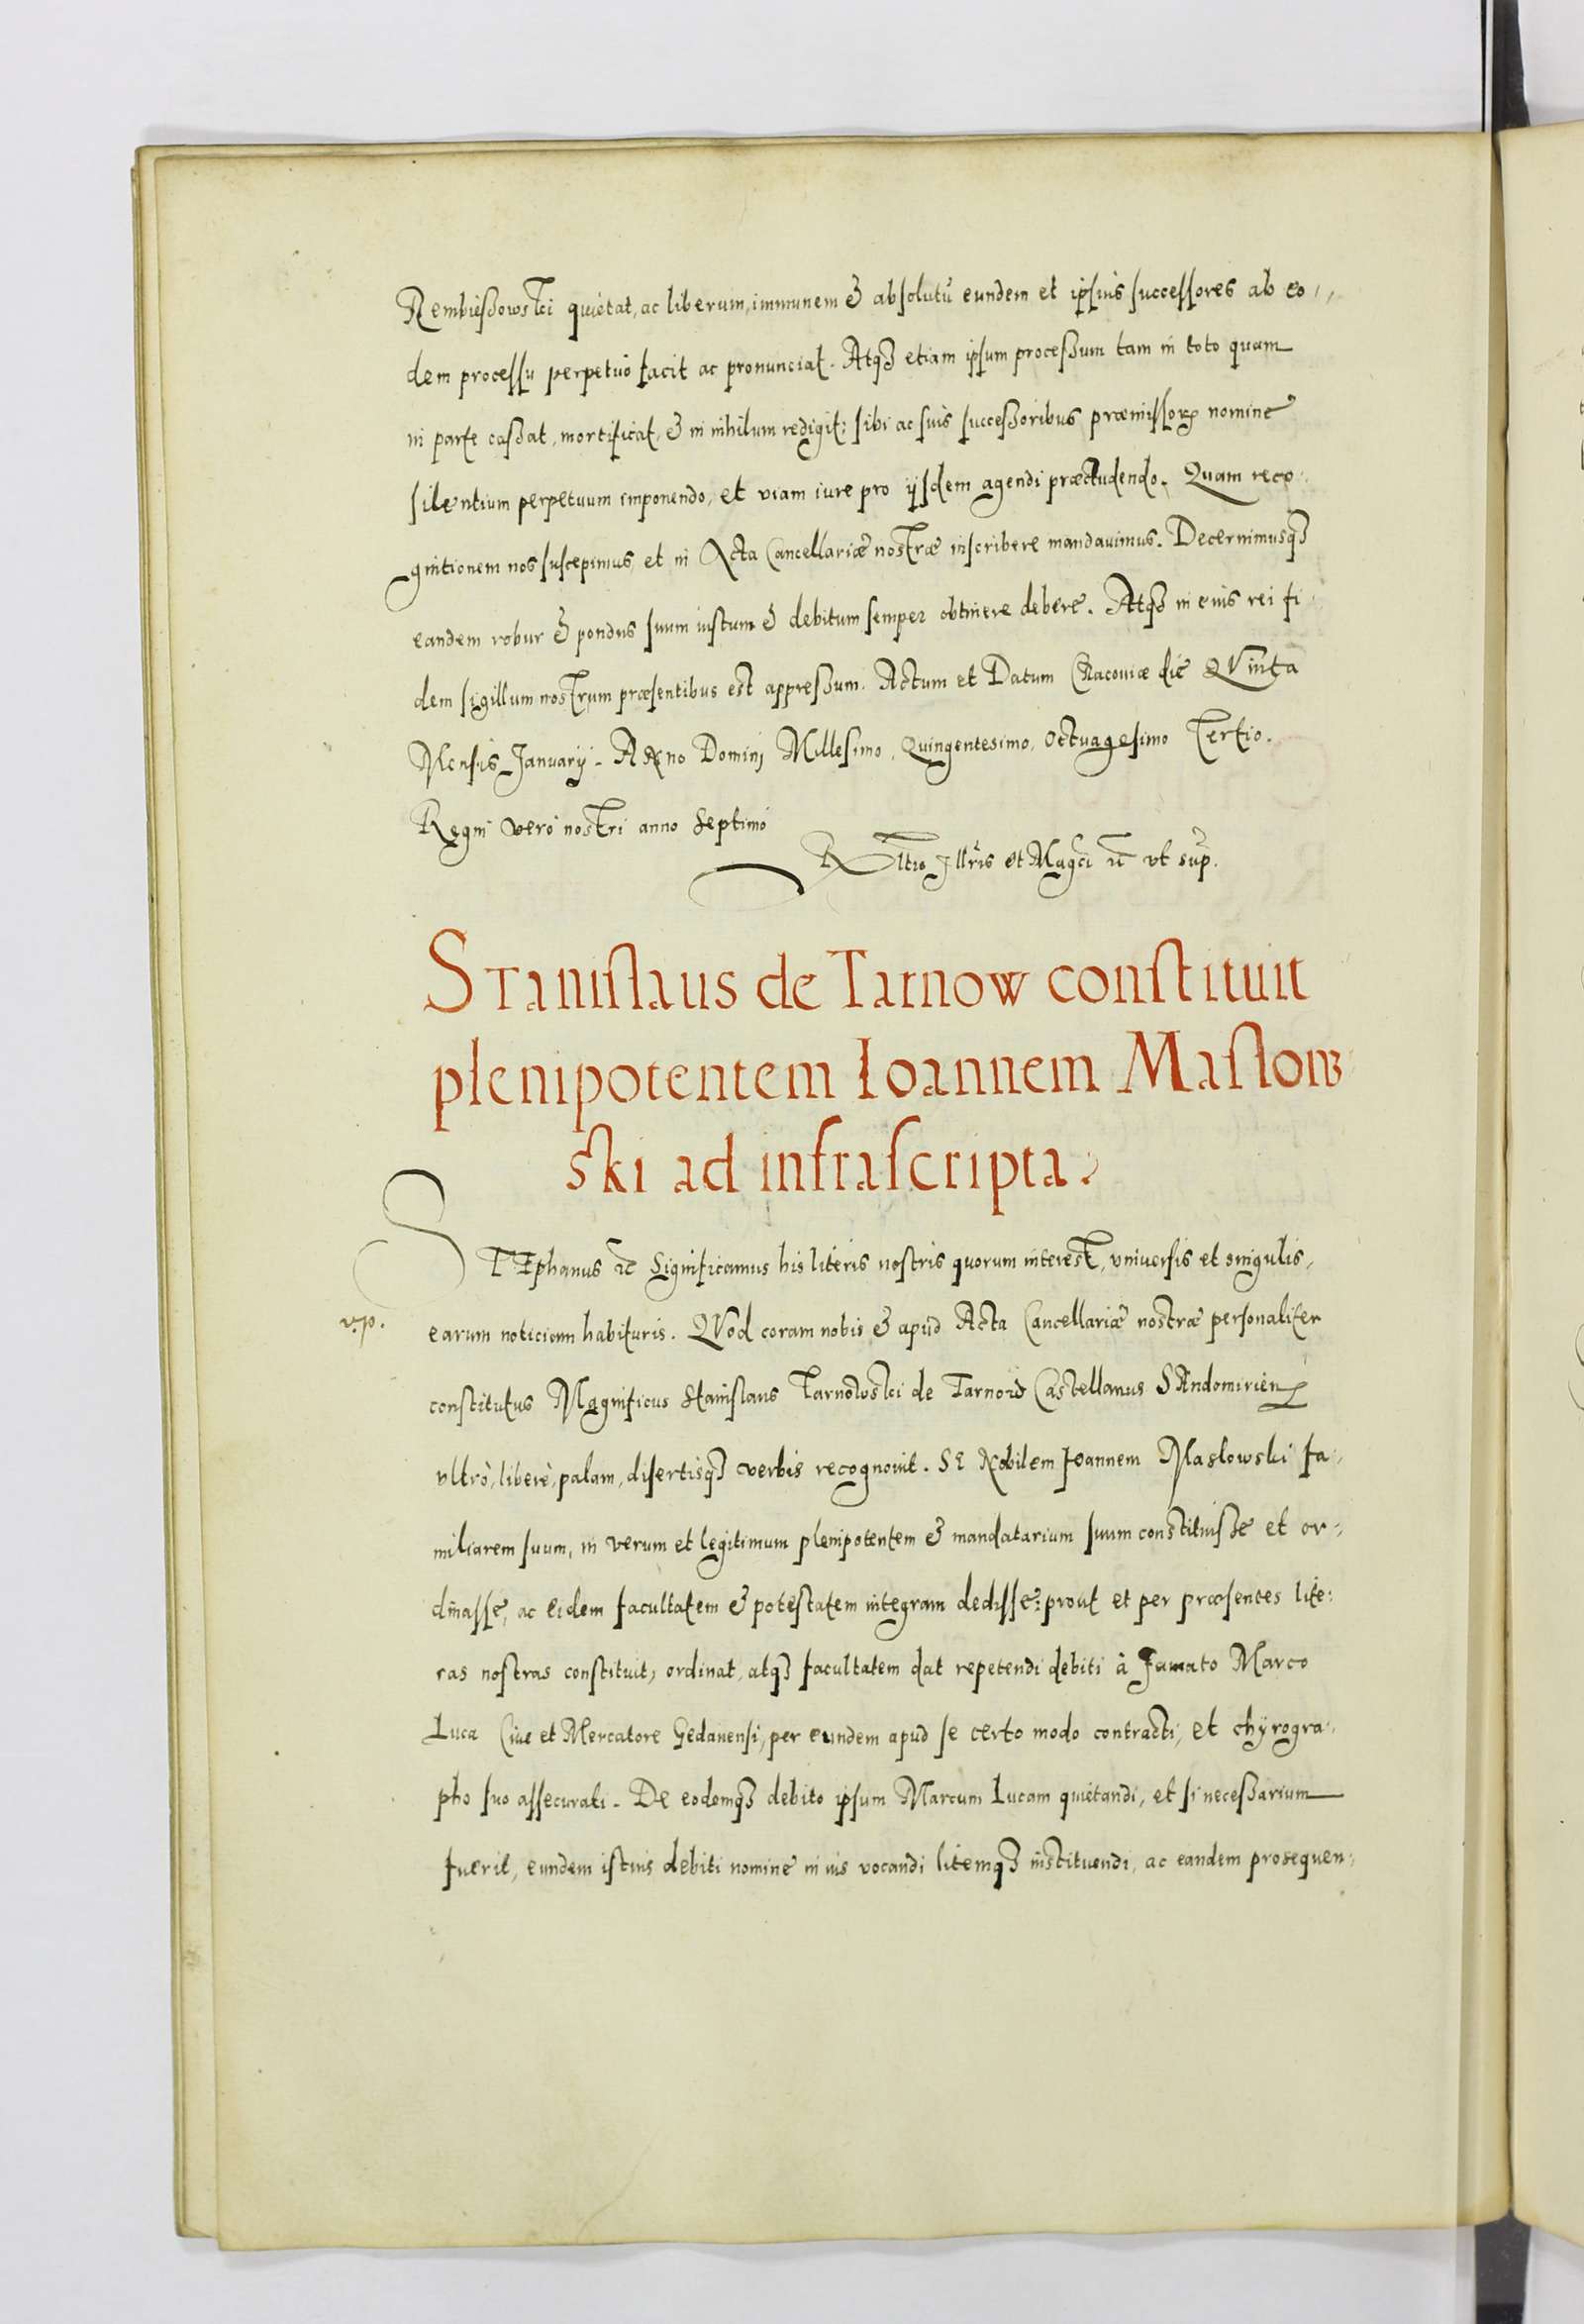 Rembießowski quietat, ac liberum, immunem & absolutū eundem et ipsius successores ab eo,,
dem processu perpetuo facit ac pronunciat. Atqʒ etiam ipsum processum tam in toto quam
in parte cassat, mortificat, & in nihilum redigit; sibi ac suis successoribus præmissorꝝ nomine
silentium perpetuum imponendo, et viam iure pro ijsdem agendi præcludendo. Quam reco:
gnitionem nos suscepimus, et in Acta Cancellariæ nostræ inscribere mandauimus. Decernimusqʒ
eandem robur & pondus suum iustum & debitum semper obtinere debere. Atqʒ in eius rei fi
dem sigillum nostrum præsentibus est appressum. Actum et Datum Cracouiæ die QVinta
Mensis Januarij. Anno Domini Millesimo, Quingentesimo, Octuagesimo Tertio.
Regni verò nostri anno Septimo
Rltio Jllris et Magci rc vt sup.
Stanislaus de Tarnow constituit
plenipotentem Ioannem Maslow
ski ad infrascripta.
STEphanus rc Significamus his literis nostris quorum interest, vniuersis et singulis,
v.p.
earum noticiam habituris. QVod coram nobis & apud Acta Cancellariæ nostræ personaliter
constitutus Magnificus Stanislaus Tarnowski de Tarnow Castellanus SAndomirien̄
vltrò, liberè, palam, disertisqʒ verbis recognouit. SE Nobilem Joannem Maslowski fa,
miliarem suum, in verum et legitimum plenipotentem & mandatarium suum constituisse et or,
dinasse, ac eidem facultatem & potestatem integram dedisse: prout et per præsentes lite:
ras nostras constituit, ordinat, atqʒ facultatem dat repetendi debiti à Famato Marco
Luca Ciue et Mercatore Gedanensi, per eundem apud se certo modo contracti, et chyrogra,
pho suo assecurati. De eodemqʒ debito ipsum Marcum Lucam quietandi, et si necessarium
fuerit, eundem istius debiti nomine in ius vocandi litemqʒ instituendi, ac eandem prosequen,